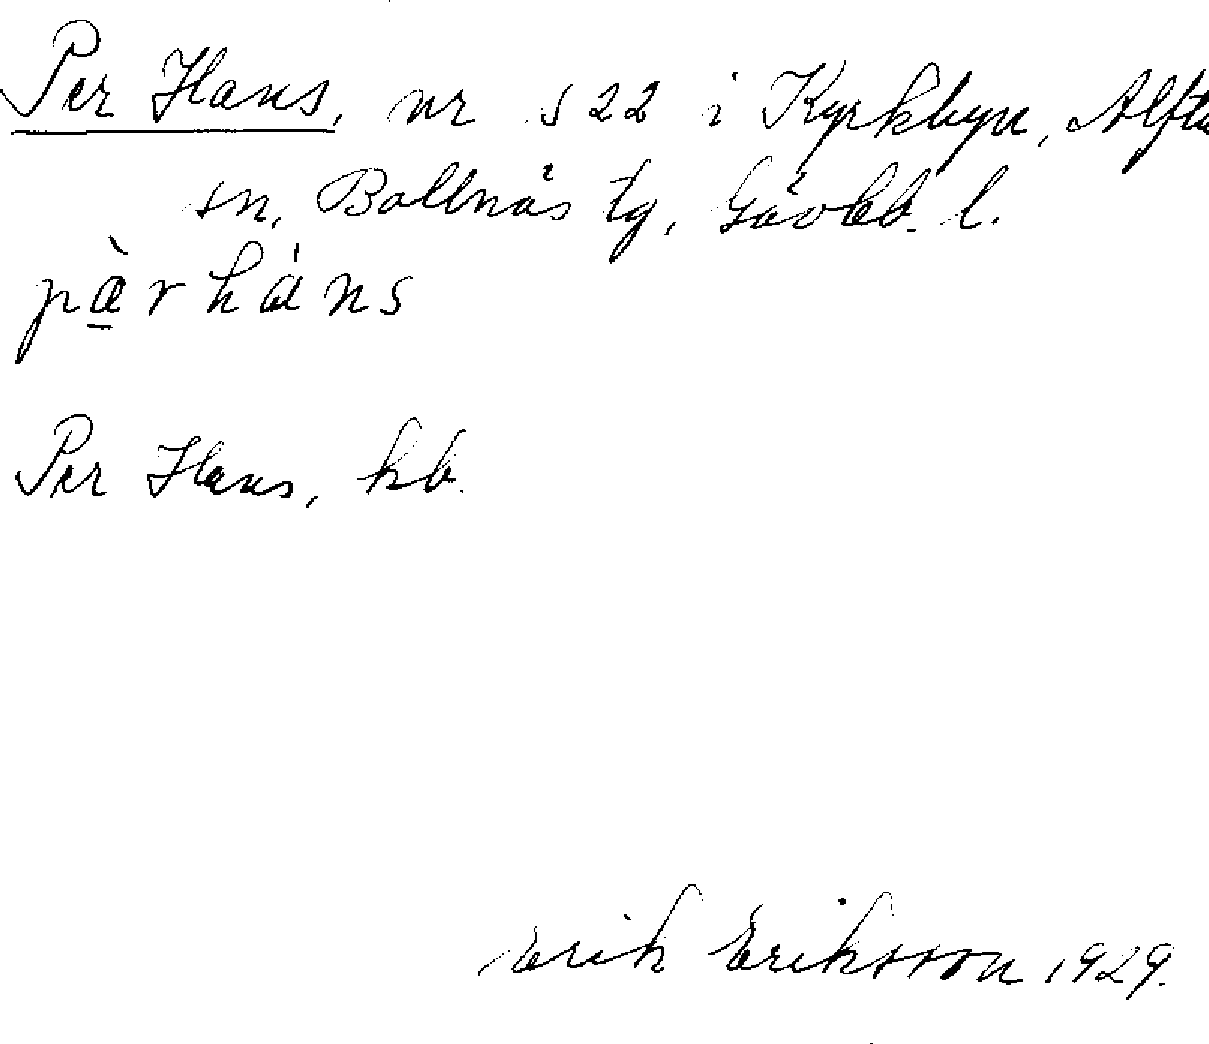 Per Hans, nr s 22 i Kyrkbyn, Alfta
sn, Bollnäs tg, Gävleb. l.
pàrháns
Per Hans, kb.
Erik Eriksson 1929.